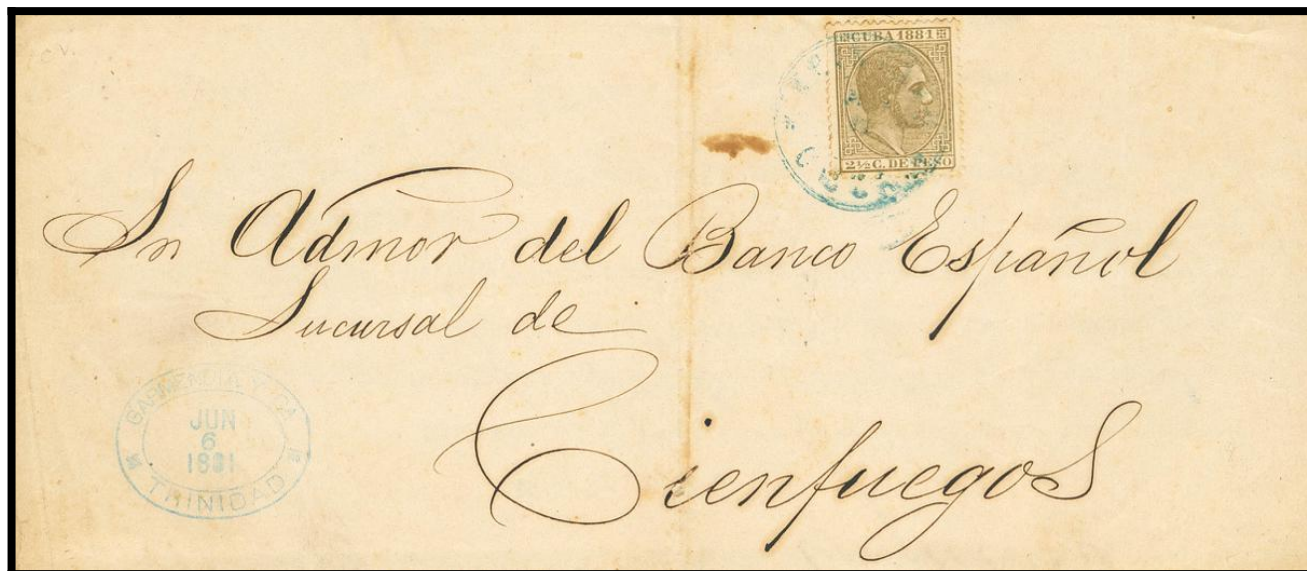 CUBA 1881
2½ C. DE PESO
Sr Admor del Banco Español
Sucursal de
Cienfuegos
GARMENDIA Y CA
JUN
6
1881
TRINIDAD